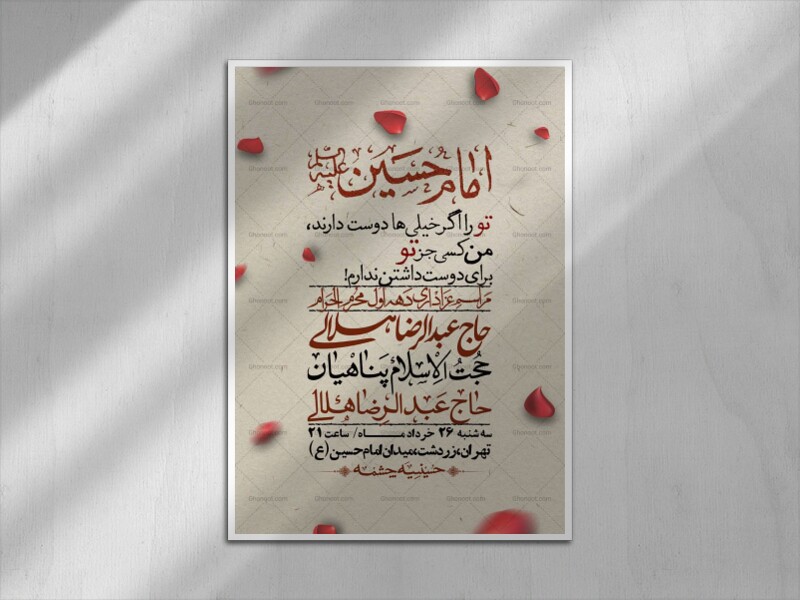 امام حسین علیه السلام
تو را اگر خیلی ها دوست دارند،
من کسی جز تو
برای دوست داشتن ندارم!
مراسم عزاداری دهه اول محرم الحرام
حاج عبدالرضا هلالی
حجت الاسلام پناهیان
حاج عبدالرضا هلالی
سه شنبه ۲۶ خرداد مـــاه / ساعت ۲۱
تهران، زردشت، میدان امام حسین (ع)
حسینیه چشمه
Ghonoot.com